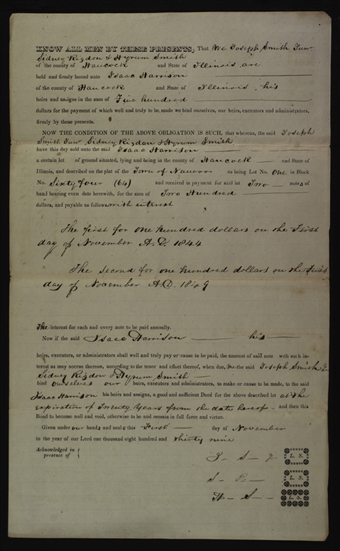 KNOW ALL MEN BY THESE PRESENTS, That We Joseph Smith Junr
Sidney Rigdon & Hyrum Smith
of the county of Hancock and State of Illinois are
held and firmly bound unto Isaac Harrison
of the county of Hancock and State of Illinois, his
heirs and assigns in the sum of Five hundred
dollars for the payment of which well and truly to be made we bind ourselves, our heirs, executors and administrators,
firmly by these presents.
NOW THE CONDITION OF THE ABOVE OBLIGATION IS SUCH, that whereas, the said Joseph
Smith Junr Sidney Rigdon & Hyrum Smith
have this day sold unto the said Isaac Harrison
a certain lot of ground situated, lying and being in the county of Hancock and State of
Illinois, and described on the plat of the Town of Nauvoo as being Lot No. One in Block
No. Sixty Four (64) and received in payment for said lot Two notes of
hand bearing even date herewith, for the sum of Two Hundred
dollars, and payable as follows with interest
The first for one hundred dollars on the First
day of November A.D. 1844
The Second for one hundred dollars on the First
day of November A.D. 1849
The interest for each and every note to be paid annually.
Now if the said Isaac Harrison his
heirs, executors, or administrators shall well and truly pay or cause to be paid, the amount of said note with such interest
as may accrue thereon, according to the tenor and effect thereof, when due, the said Joseph Smith Jr
Sidney Rigdon & Hyrum Smith
bind ourselves our heirs, executors and administrators, to make or cause to be made, to the said
Isaac Harrison his heirs and assigns, a good and sufficient Deed for the above described lot at the
expiration of Twenty Years from the date hereof and then this
Bond to become null and void, otherwise to be and remain in full force and virtue.
Given under our hands and seals this First day of November
in the year of our Lord one thousand eight hundred and thirty nine
Acknowledged in
presence of
J. S. J. L. S.
S. R. L. S.
H. S. L. S.